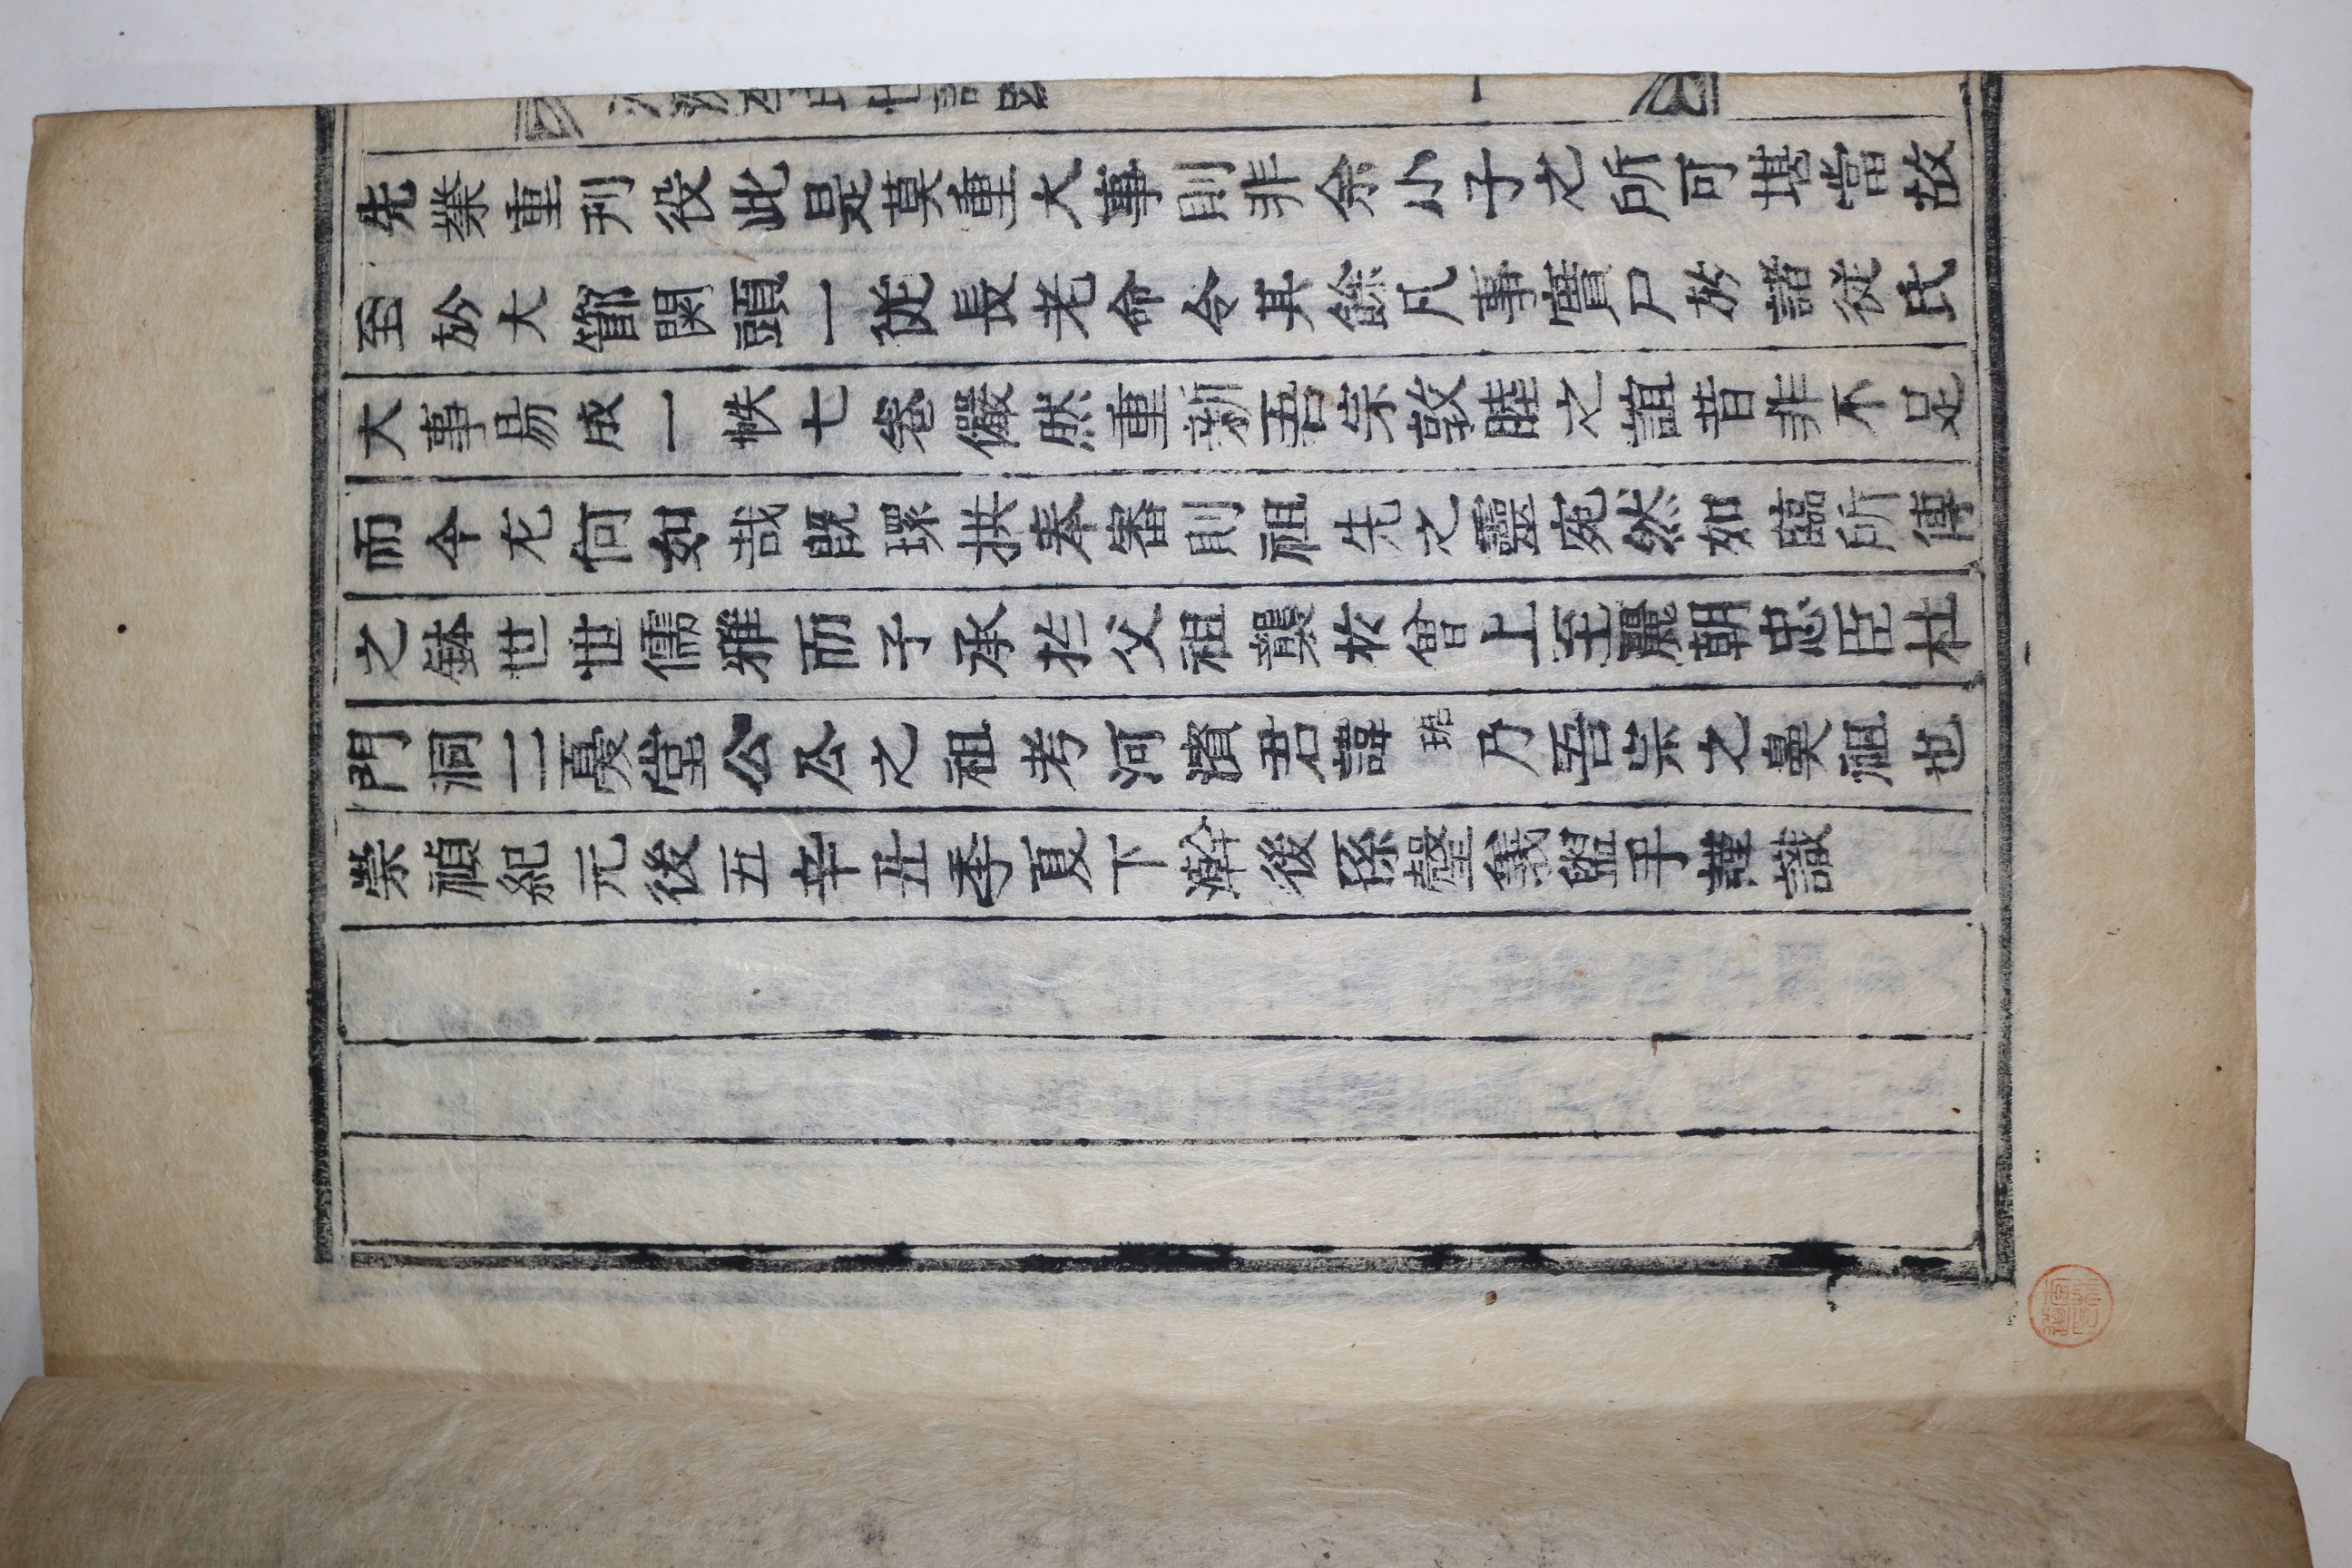 先業重刊役此是莫重大事則非余小子之所可堪當故
至於大節関頭一從長老命令其餘凡事實尸於諸從氏
大事易成一帙七卷儼然重新吾宗敦睦之誼昔非不足
而今尤何如哉旣環拱奉審則祖先之靈宛然如臨所傳
之鉢世世儒雅而子承於父祖襲於曾上至麗朝忠臣杜
門洞三憂堂公公之祖考河濱君諱琚乃吾宗之鼻祖也
崇禎紀元後五辛丑季夏下澣後孫馨義盥手謹識
一